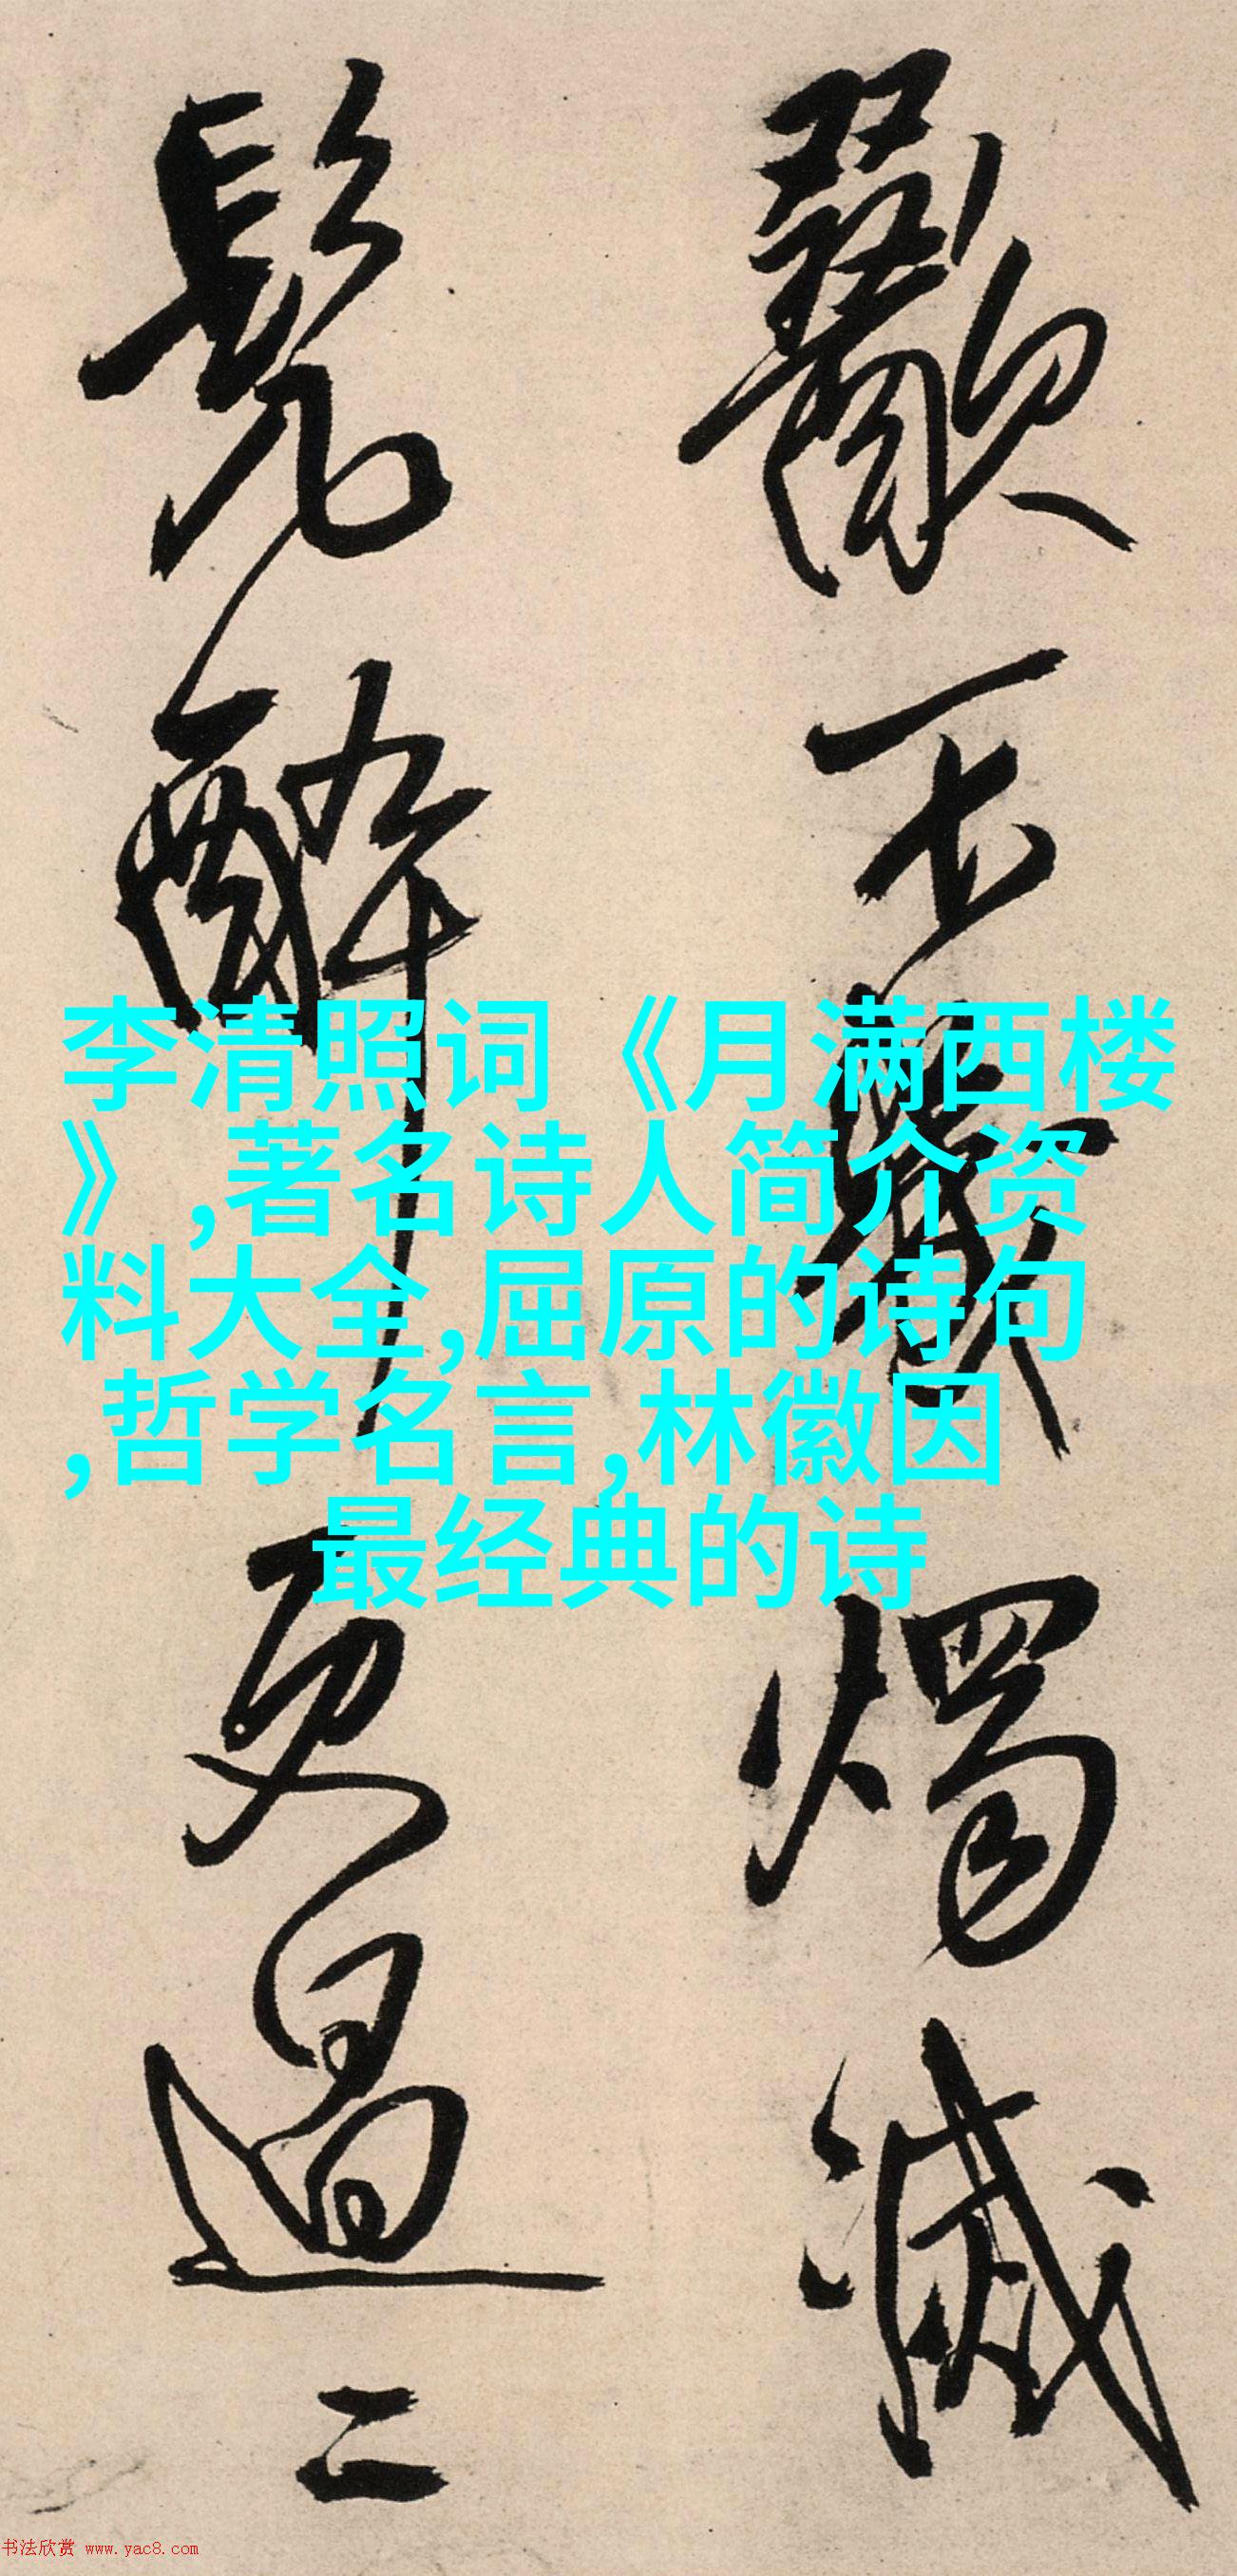 不 燭滅
髡醉更過二
李清照词《月满西楼
》,著名诗人简介资
料大全,屈原的诗句
,哲学名言,林徽因
最经典的诗
书法欣赏 www.yac8.com